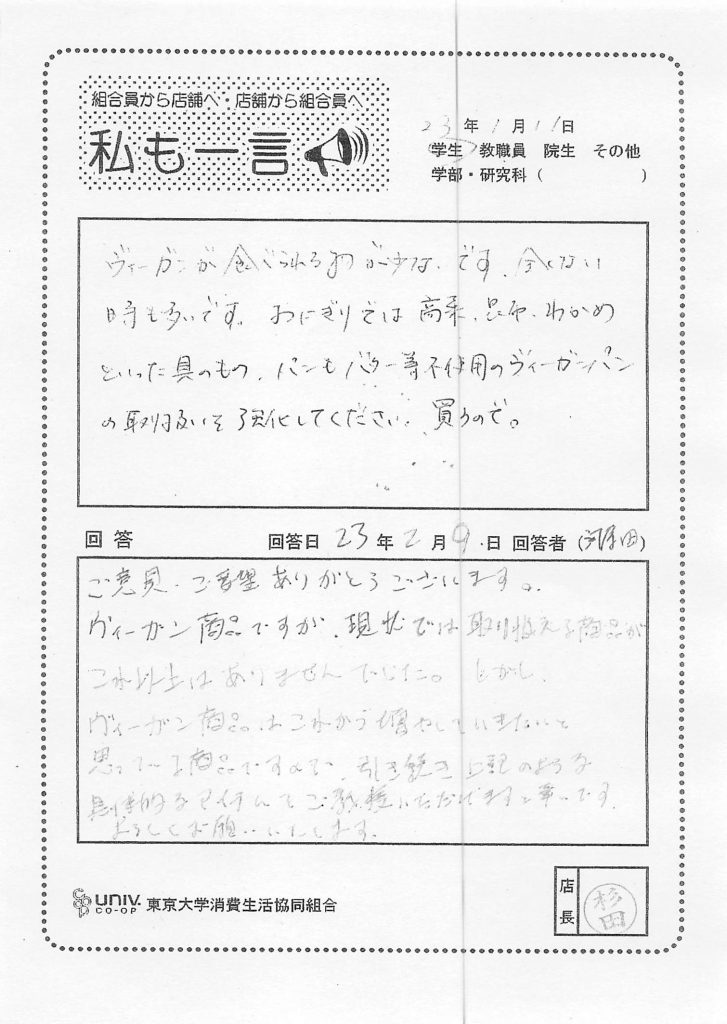 組合員から店舗へ・店舗から組合員へ
私も一言
23年1月11日
学生 教職員 院生 その他
学部・研究科( )
ヴィーガンが食べられる物が少ないです。全くない
時も多いです。おにぎりでは高菜、昆布、わかめ
といった具のもの、パンもバター等不使用のヴィーガンパン
の取り扱いを強化してください。買うので。
回答 回答日 23年2月9日 回答者( 田)
ご意見・ご要望ありがとうございます。
ヴィーガン商品ですが、現状では取り扱える商品が
これ以上はありませんでした。しかし、
ヴィーガン商品はこれから増やしていきたいと
思っている商品ですので、引き続き上記のような
具体的なアイテムをご教授いただけますと幸いです。
よろしくお願いいたします。
UNIV. CO-OP 東京大学消費生活協同組合
店長
田